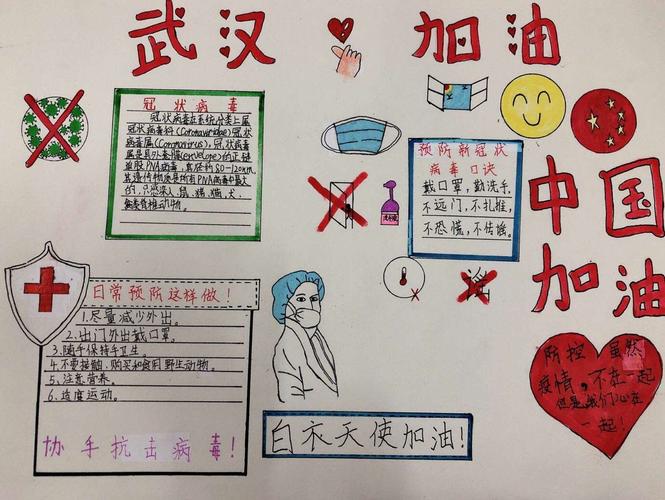 武汉 加油
冠状病毒
冠状病毒在系统分类上属
冠状病毒科(Coronaviridae)冠状
病毒属(Coronavirus)。冠状病毒
属是具外套膜(envelope)的正链
单股RNA病毒，直径约80-120nm
其遗传物质是所有RNA病毒中最大
的，只感染人、鼠、猪、猫、犬、
禽类脊椎动物。
预防新冠状
病毒口诀
戴口罩，勤洗手，
不远门，不扎推，
不恐慌，不传谣。
中国
加油
日常预防这样做！
1.尽量减少外出。
2.出门外出戴口罩。
3.随手保特手卫生。
4.不要接触，购买和食用野生动物。
5.注意营养。
6.适度运动。
协手抗击病毒！
白衣天使加油！
防控 虽然
疫情，不在一起
但是我们心在
一起！